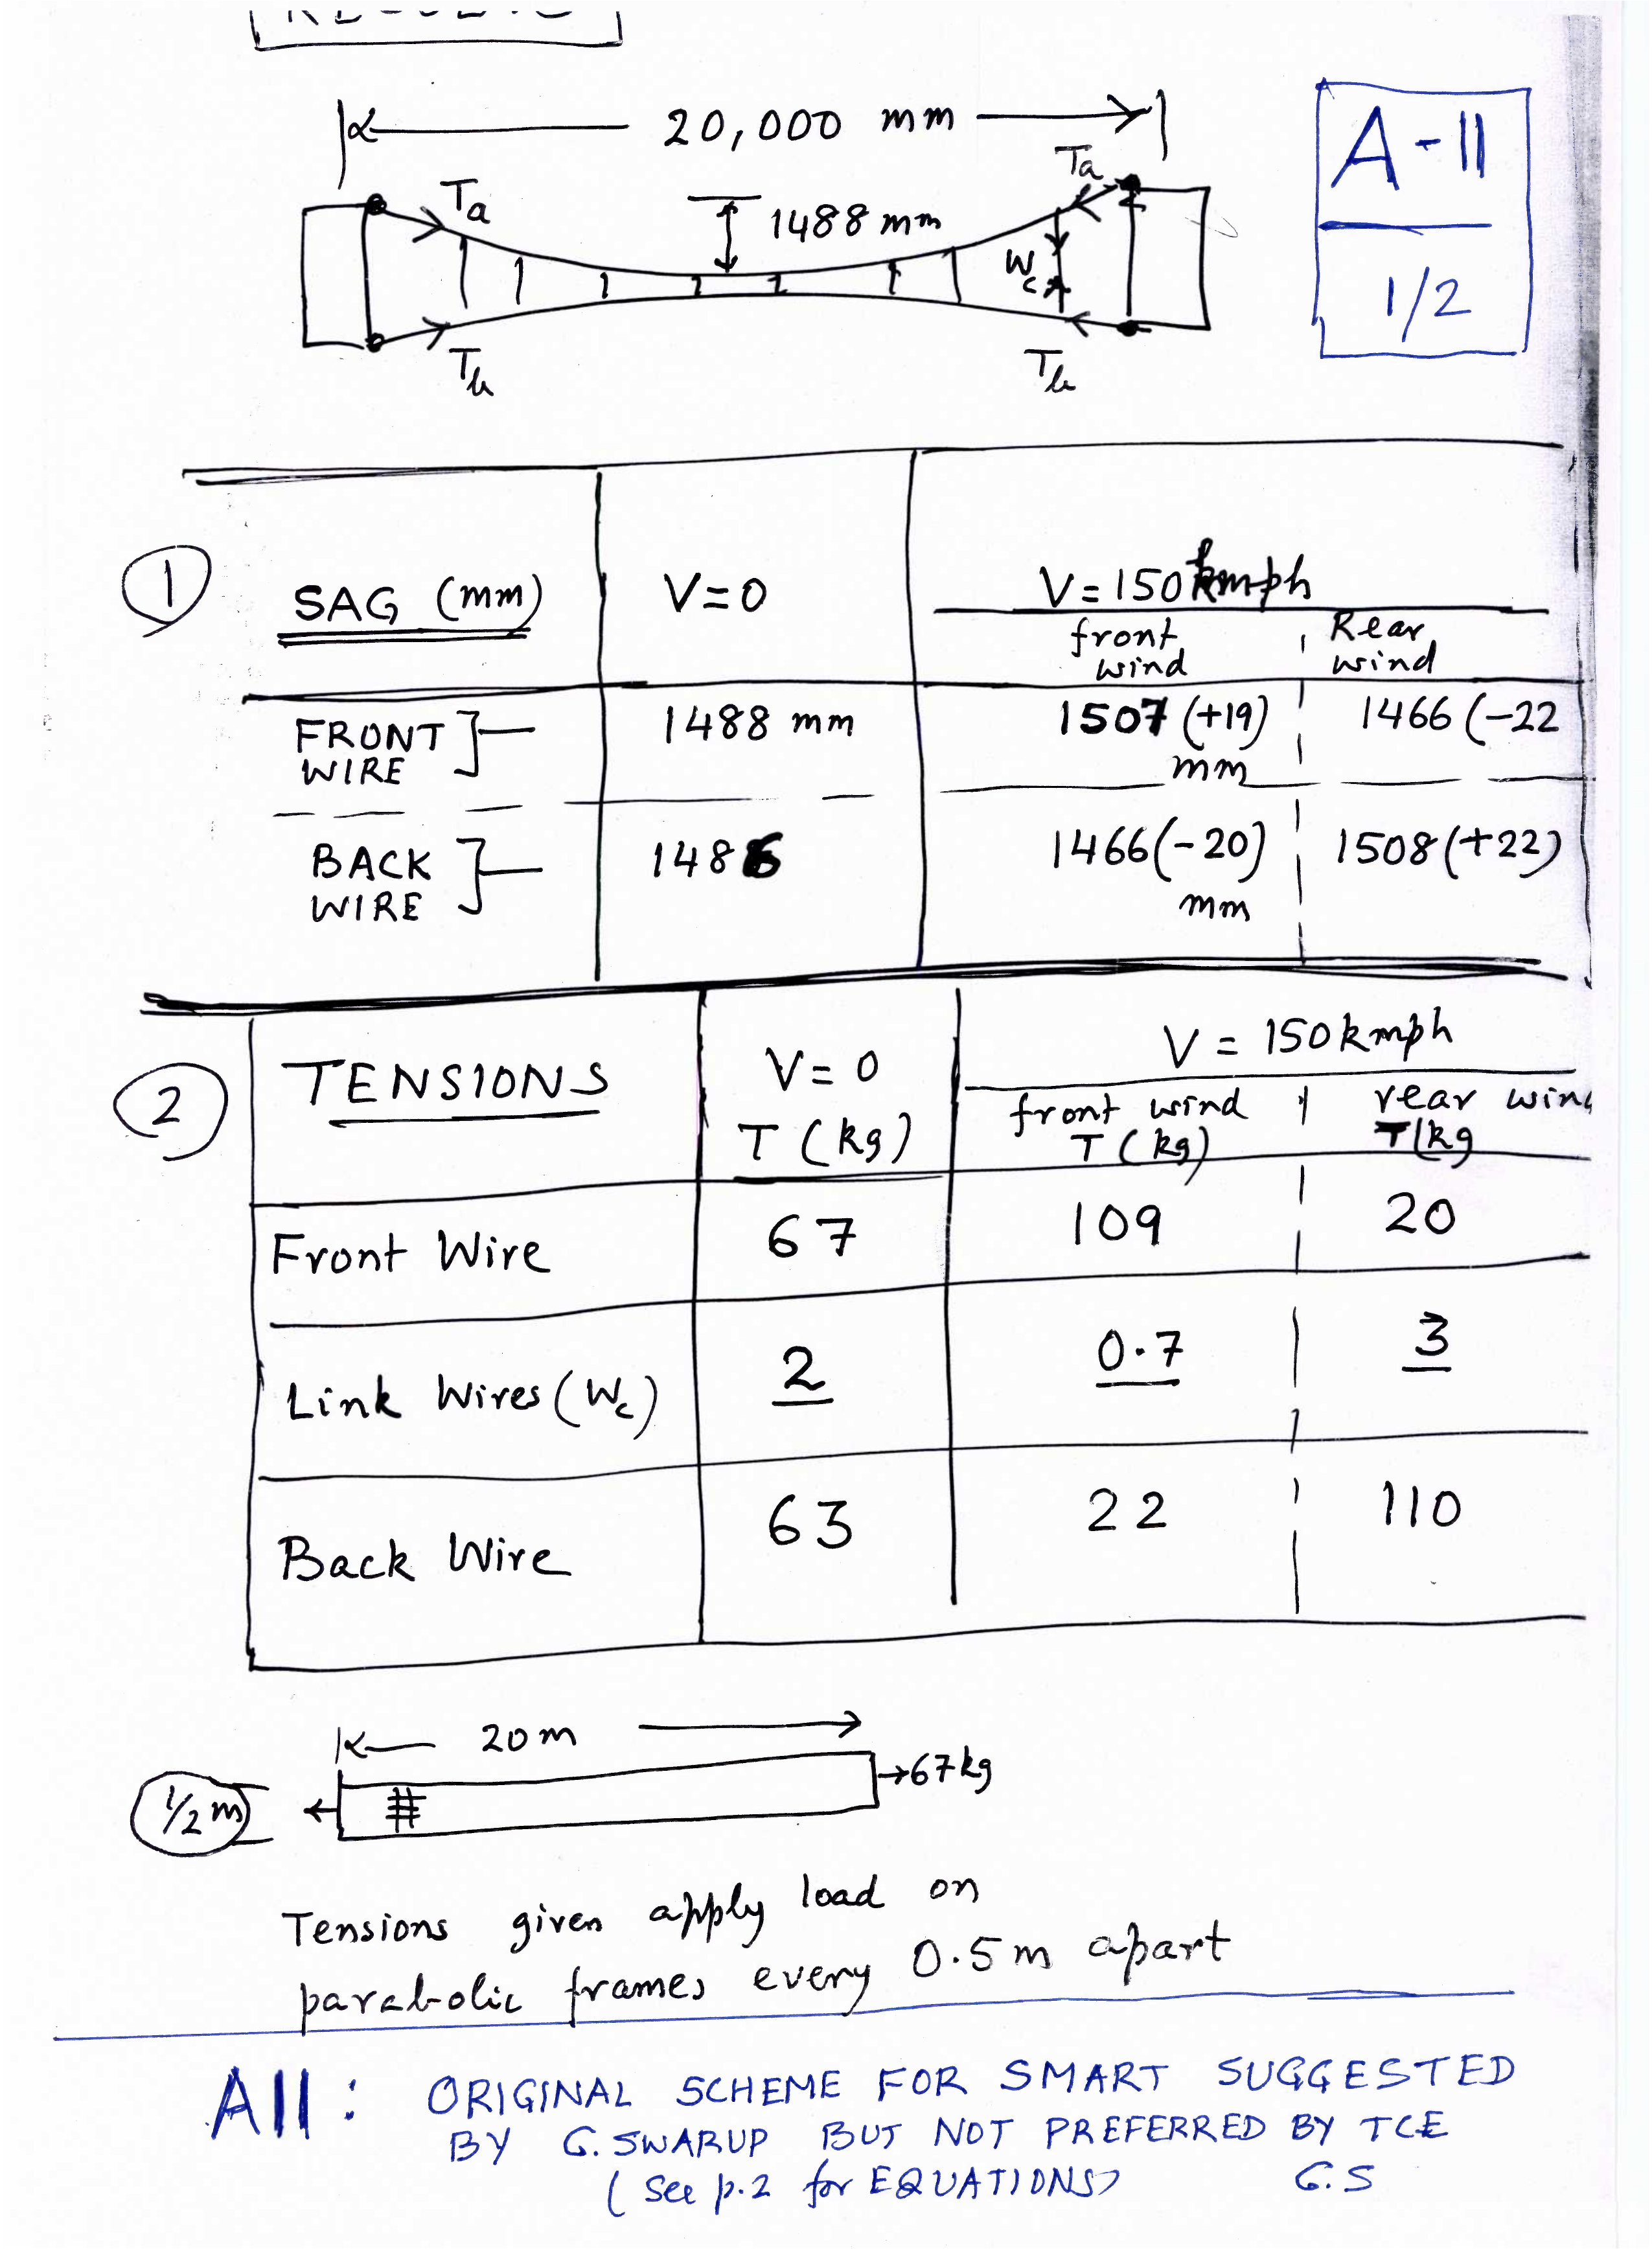 RESULTS
20,000 mm
A-11
1/2
Ta
Ta
1488 mm
Wc
Tb
Tb
1
SAG (mm)
V=0
V=150 kmph
front wind
Rear wind
FRONT WIRE
1488 mm
1507 (+19) mm
1466 (-22
BACK WIRE
1486
1466 (-20) mm
1508 (+22)
2
TENSIONS
V=0
T (kg)
V = 150 kmph
front wind
T (kg)
rear win
T (kg
Front Wire
67
109
20
Link Wires (Wc)
2
0.7
3
Back Wire
63
22
110
20 m
→67 kg
1/2 m
#
Tensions given apply load on
parabolic frames every 0.5 m apart
A11: ORIGINAL SCHEME FOR SMART SUGGESTED
BY G. SWARUP BUT NOT PREFERRED BY TCE
(See p.2 for EQUATIONS) G.S